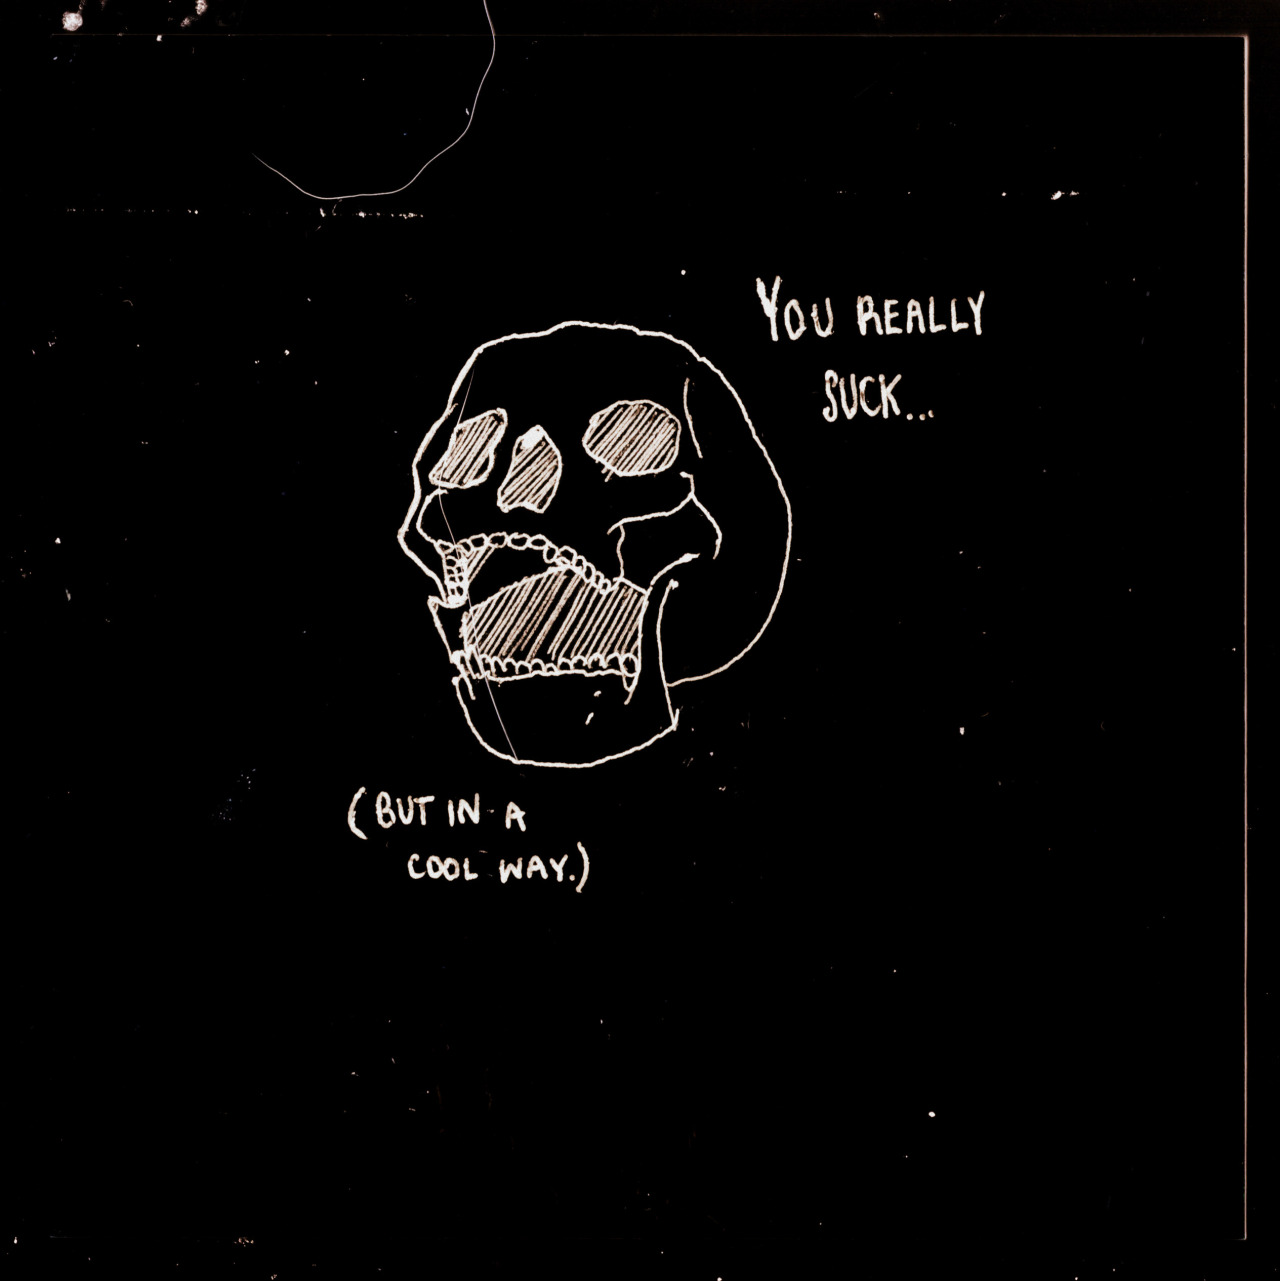 YOU REALLY
SUCK...
(BUT IN A
COOL WAY.)